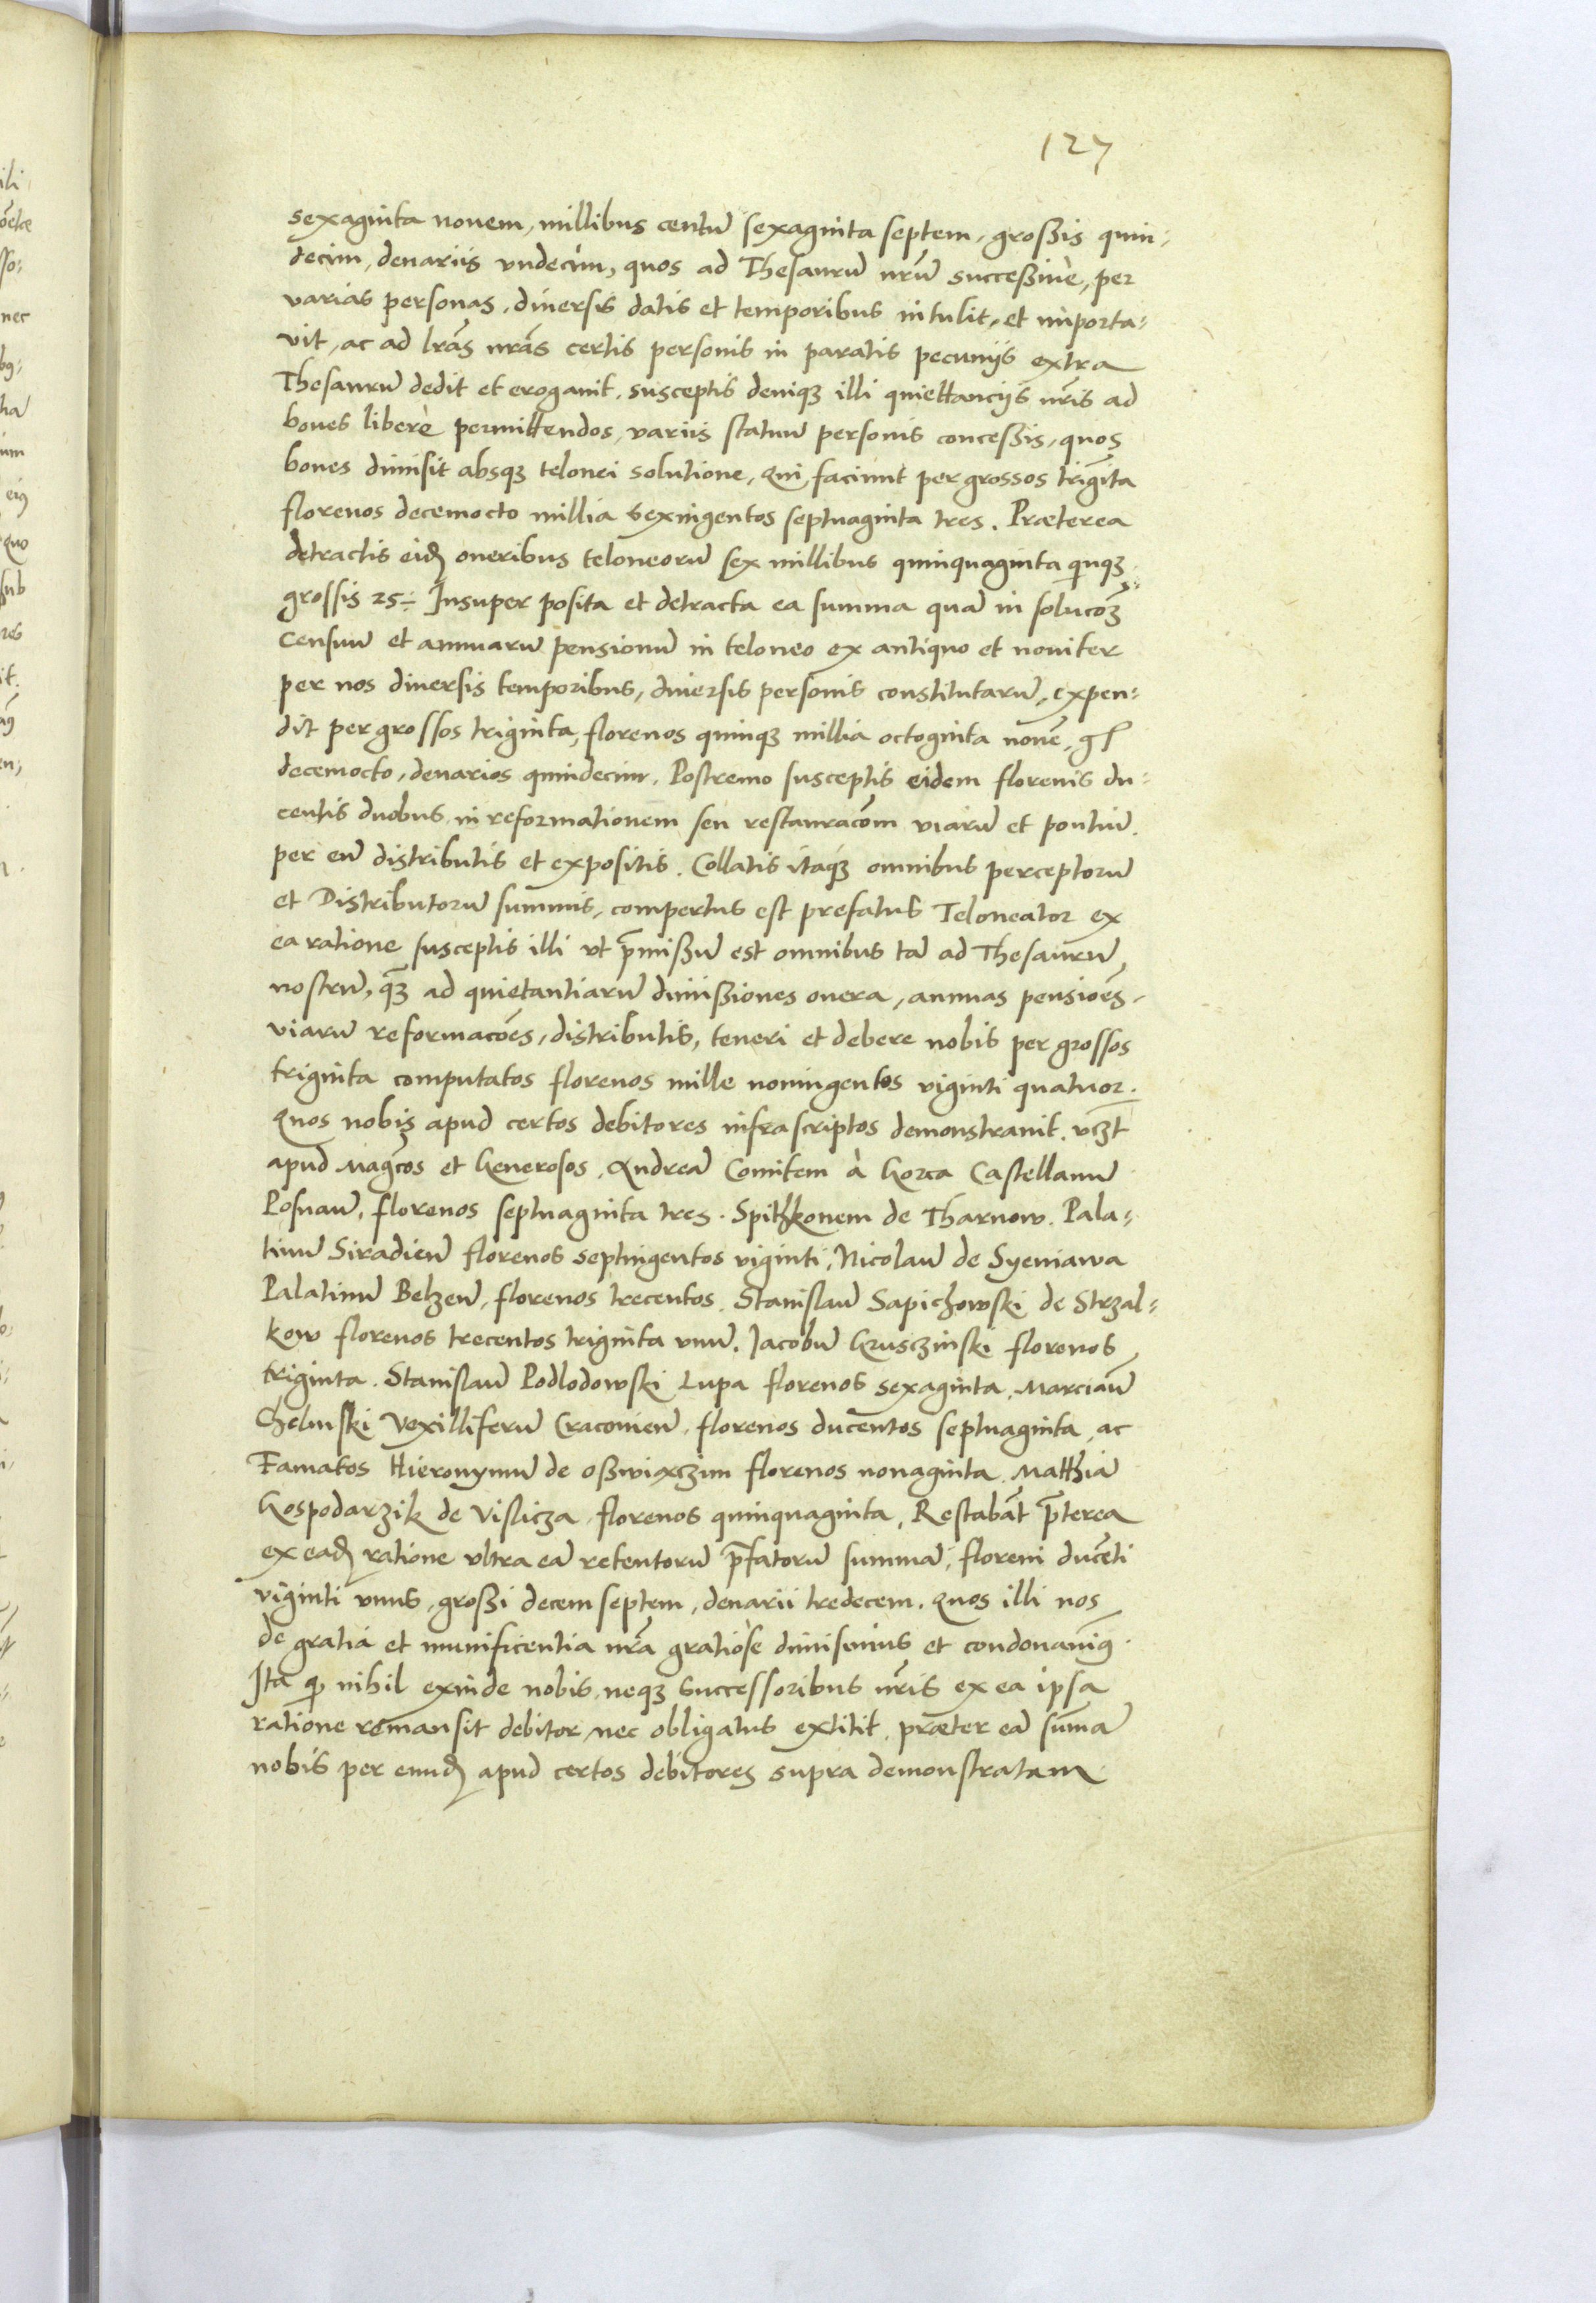 127
sexaginta novem, millibus centū sexaginta septem, großis quin-
decim, denariis vndecim, quos ad Thesaurū nrūm succeßive, per
varias personas, diversis datis et temporibus intulit, et importa-
vit, ac ad lrās nrās certis personis in paratis pecuniis extra
Thesaurū dedit et erogavit, susceptis deniqȝ illi quiettanciis nrīs ad
boves liberè permittendos, variis statuū personis conceßis, quos
boves dimisit absqȝ telonei solutione, Qui faciunt per grossos trigīta
florenos decemocto millia sexingentos septuaginta tres. Præterea
detractis eidꝫ oneribus teloneorū sex millibus quinquaginta qīnqȝ
grossis 25. Insuper posita et detracta ea summa quā in solucōꝫ
censuū et annuarū pensionū in teloneo ex antiquo et noviter
per nos diversis temporibus, diversis personis constitutarū, expen-
dit per grossos triginta, florenos quinqȝ millia octoginta novē, gſ
decemocto, denarios quindecim. Postremo susceptis eidem florenis du-
centis duobus in reformationem seu restauracōm viarū et pontiū
per eū distributis et expositis. Collatis itaqȝ omnibus perceptorū
et Distributorū summis, compertus est prefatus Teloneator ex
ea ratione susceptis illi vt p̄mißū est omnibus tā ad Thesaurū
nostrū, qꝫ ad quietantiarū dimißiones onera, annuas pensiōes,
viarū reformacōes, distributis, teneri et debere nobis per grossos
triginta computatos florenos mille noningentos viginti quatuor.
Quos nobis apud certos debitores infrascriptos demonstravit. vcꝫt
apud Magcōs et Generosos, Andreā Comitem à Gorca Castellanū
Posnaū, florenos septuaginta tres. Spithkonem de Tharnow. Pala-
tinū Siradieū florenos septingentos viginti, Nicolaū de Syeniawa
Palatinū Belzeū, florenos trecentos. Stanislaū Sapichowski de Strzal-
kow florenos trecentos triginta vnū. Jacobū Gruszcinski florenos
triginta. Stanislaū Podlodowski Lupa florenos sexaginta. Marciānū
Chelmski Vexilliferū Cracovieū florenos ducentos septuaginta, ac
Famatos Hieronymū de Oßwiaczim florenos nonaginta. Matthiā
Gospodarzik de Vislicza florenos quinquaginta, Restabāt p̄terea
ex eadꝫ ratione vltra eā retentorū p̄fatorū summā, floreni ducēti
viginti vnus, großi decem septem, denarii tredecem. Quos illi nos
de gratia et munificentia nrā gratiose dimisimus et condonavimꝰ.
Ita ꝙ nihil exinde nobis, neqȝ successoribus nrīs ex ea ipsa
ratione remansit debitor, nec obligatus extitit, præter eā sūmā
nobis per eundꝫ apud certos debitores supra demonstratam